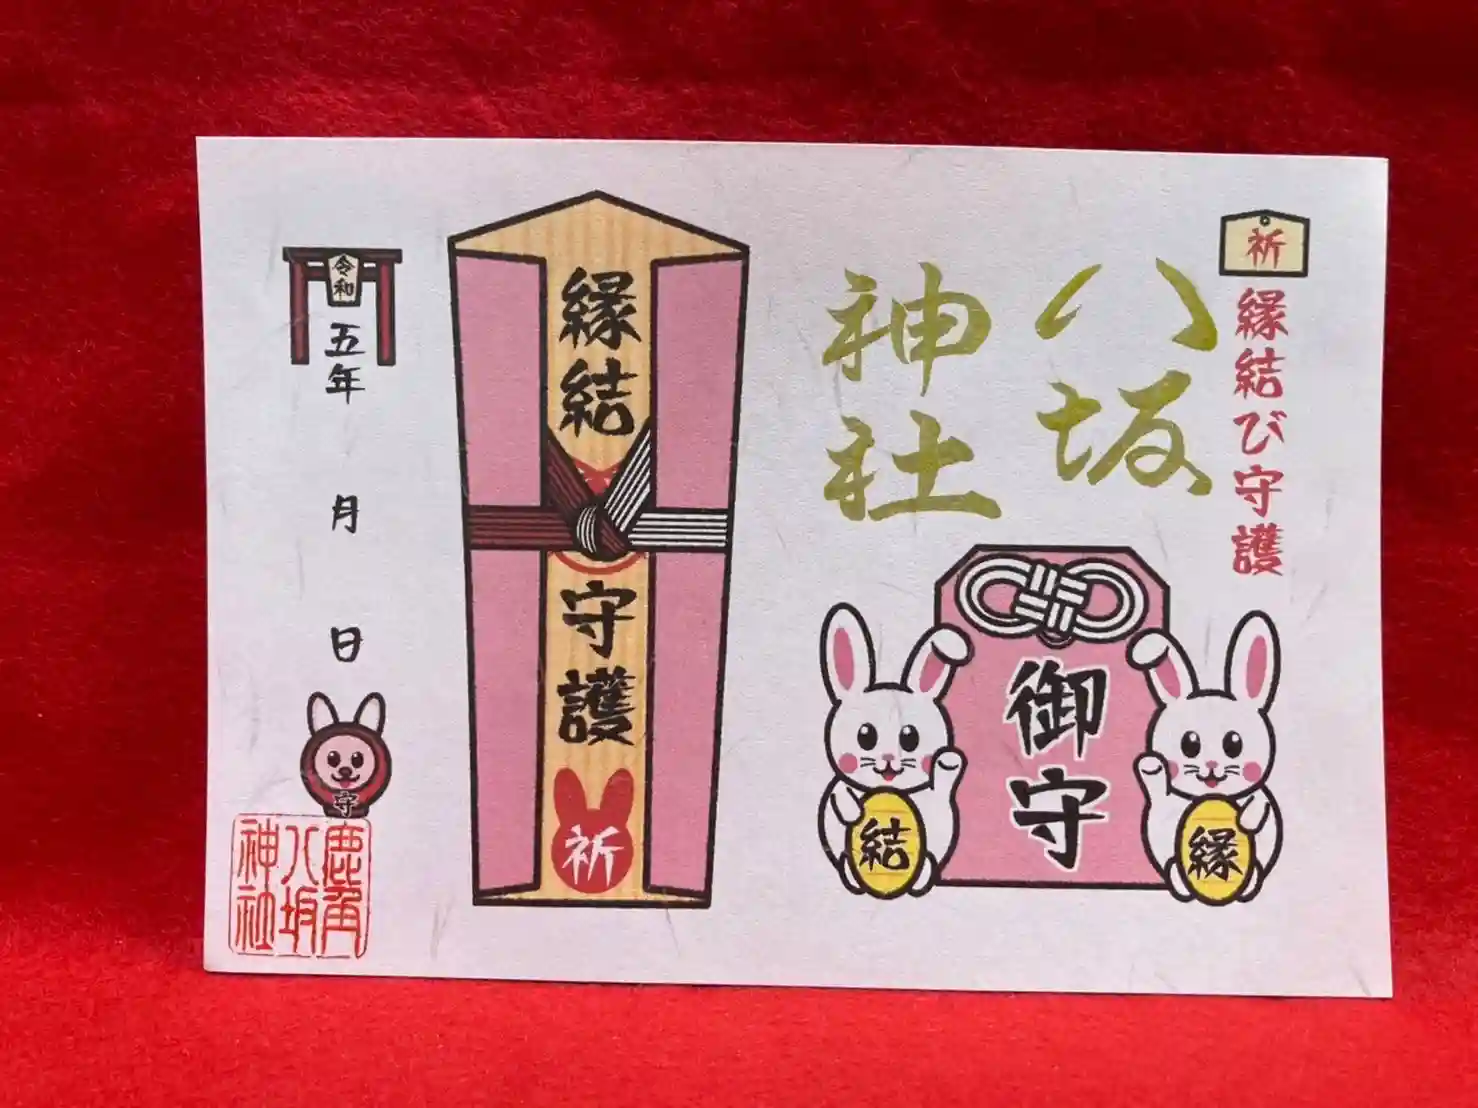 祈
縁結び守護
八坂
神社
御守
縁
結
縁結
守護
祈
令和
五年
月
日
守
鹿角
八坂
神社